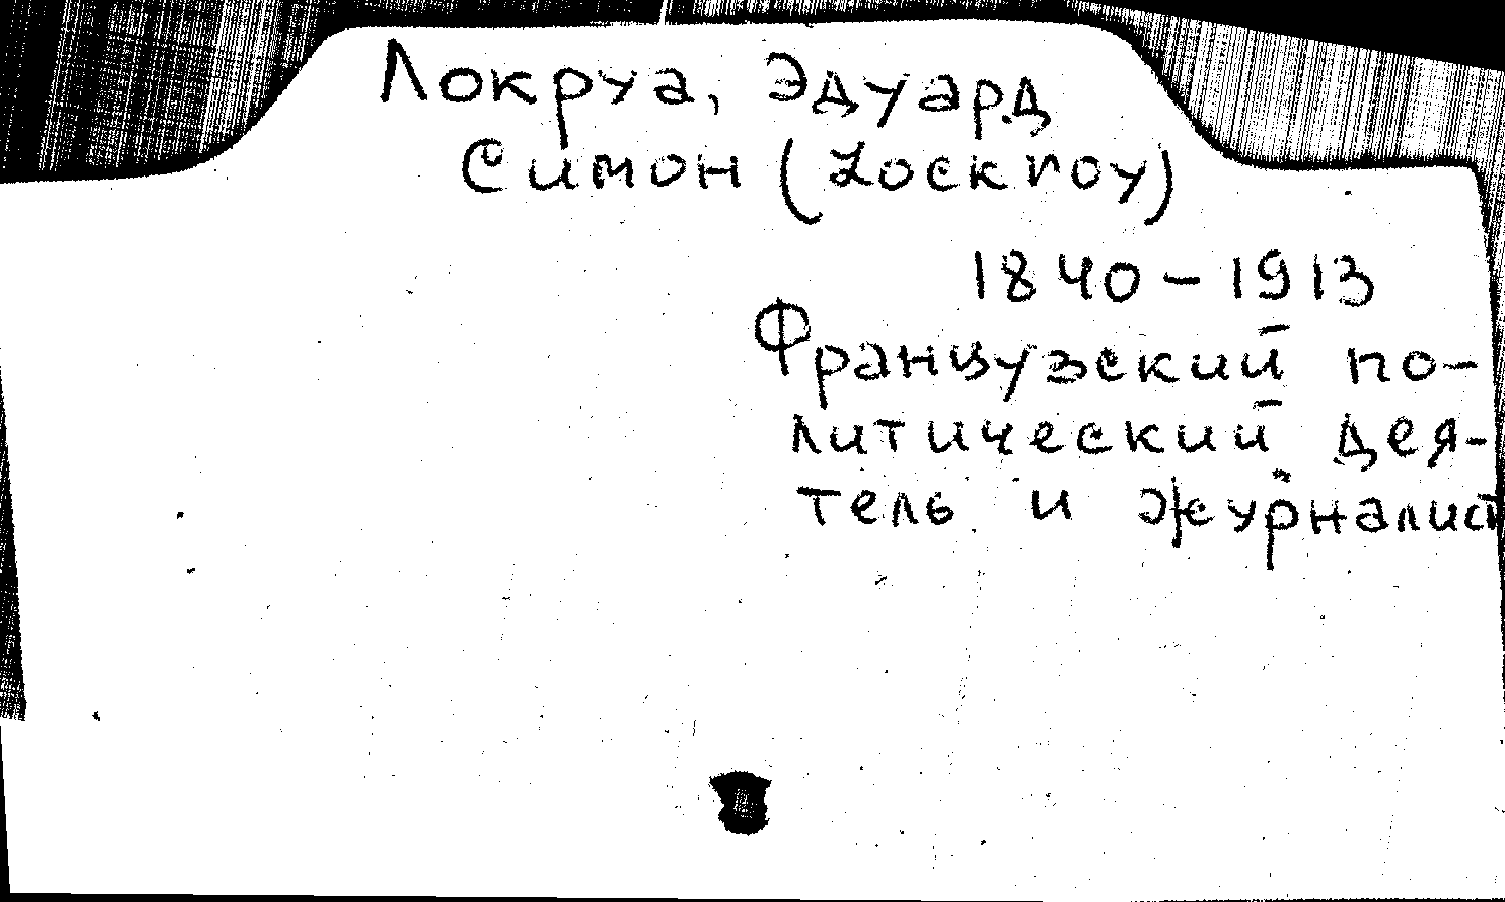 Локруа, Эдуард
Симон (Lockroy)
1840-1913
Французский по-
литический дея-
тель и журналист